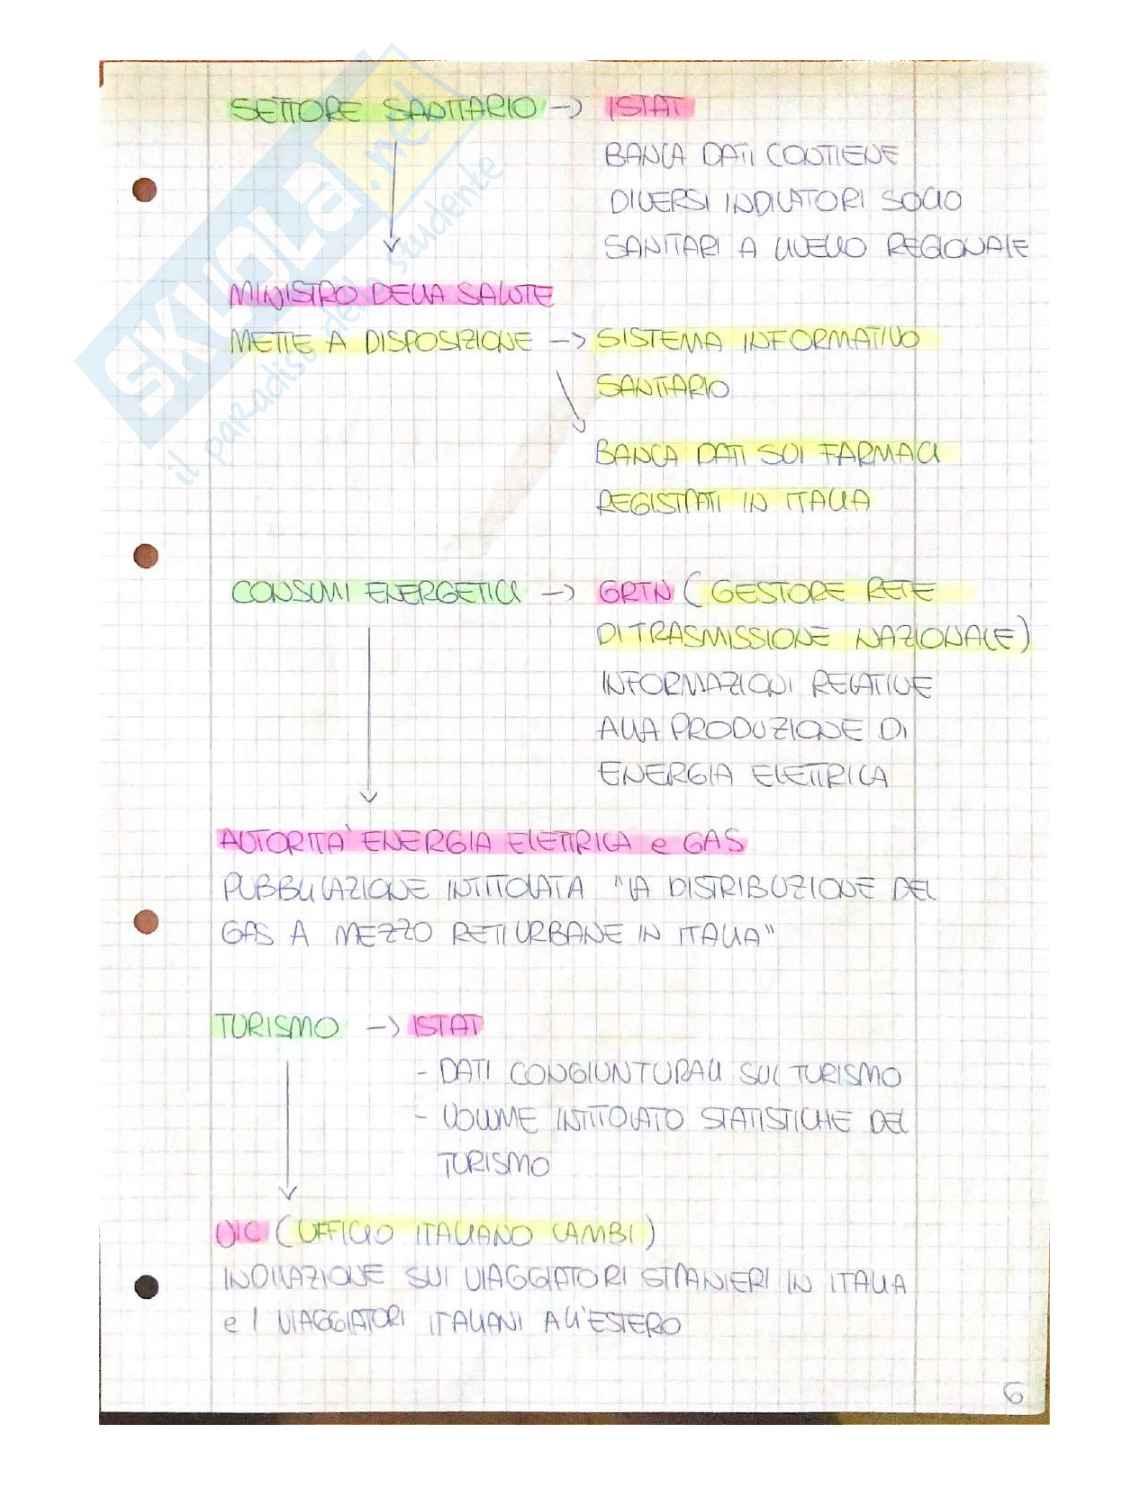 SETTORE SANITARIO -> ISTAT
BANCA DATI CONTIENE
DIVERSI INDICATORI SOCIO
SANITARI A LIVELLO REGIONALE
MINISTRO DELLA SALUTE
METTE A DISPOSIZIONE -> SISTEMA INFORMATIVO
SANITARIO
BANCA DATI SUI FARMACI
REGISTRATI IN ITALIA
CONSUMI ENERGETICI -> GRTN (GESTORE RETE
DI TRASMISSIONE NAZIONALE)
INFORMAZIONI RELATIVE
ALLA PRODUZIONE DI
ENERGIA ELETTRICA
AUTORITA' ENERGIA ELETTRICA e GAS
PUBBLICAZIONE INTITOLATA "LA DISTRIBUZIONE DEL
GAS A MEZZO RETI URBANE IN ITALIA"
TURISMO -> ISTAT
- DATI CONGIUNTURALI SUL TURISMO
- VOLUME INTITOLATO STATISTICHE DEL
TURISMO
UIC (UFFICIO ITALIANO CAMBI)
INDICAZIONE SUI VIAGGIATORI STRANIERI IN ITALIA
e I VIAGGIATORI ITALIANI ALL'ESTERO
6
SKUOLA.net
il paradiso dello studente